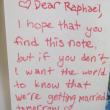 ♡ Dear Raphael
I hope that you
find this note,
but if you don't
I want the world
to know that
we're getting married
tomorrow!